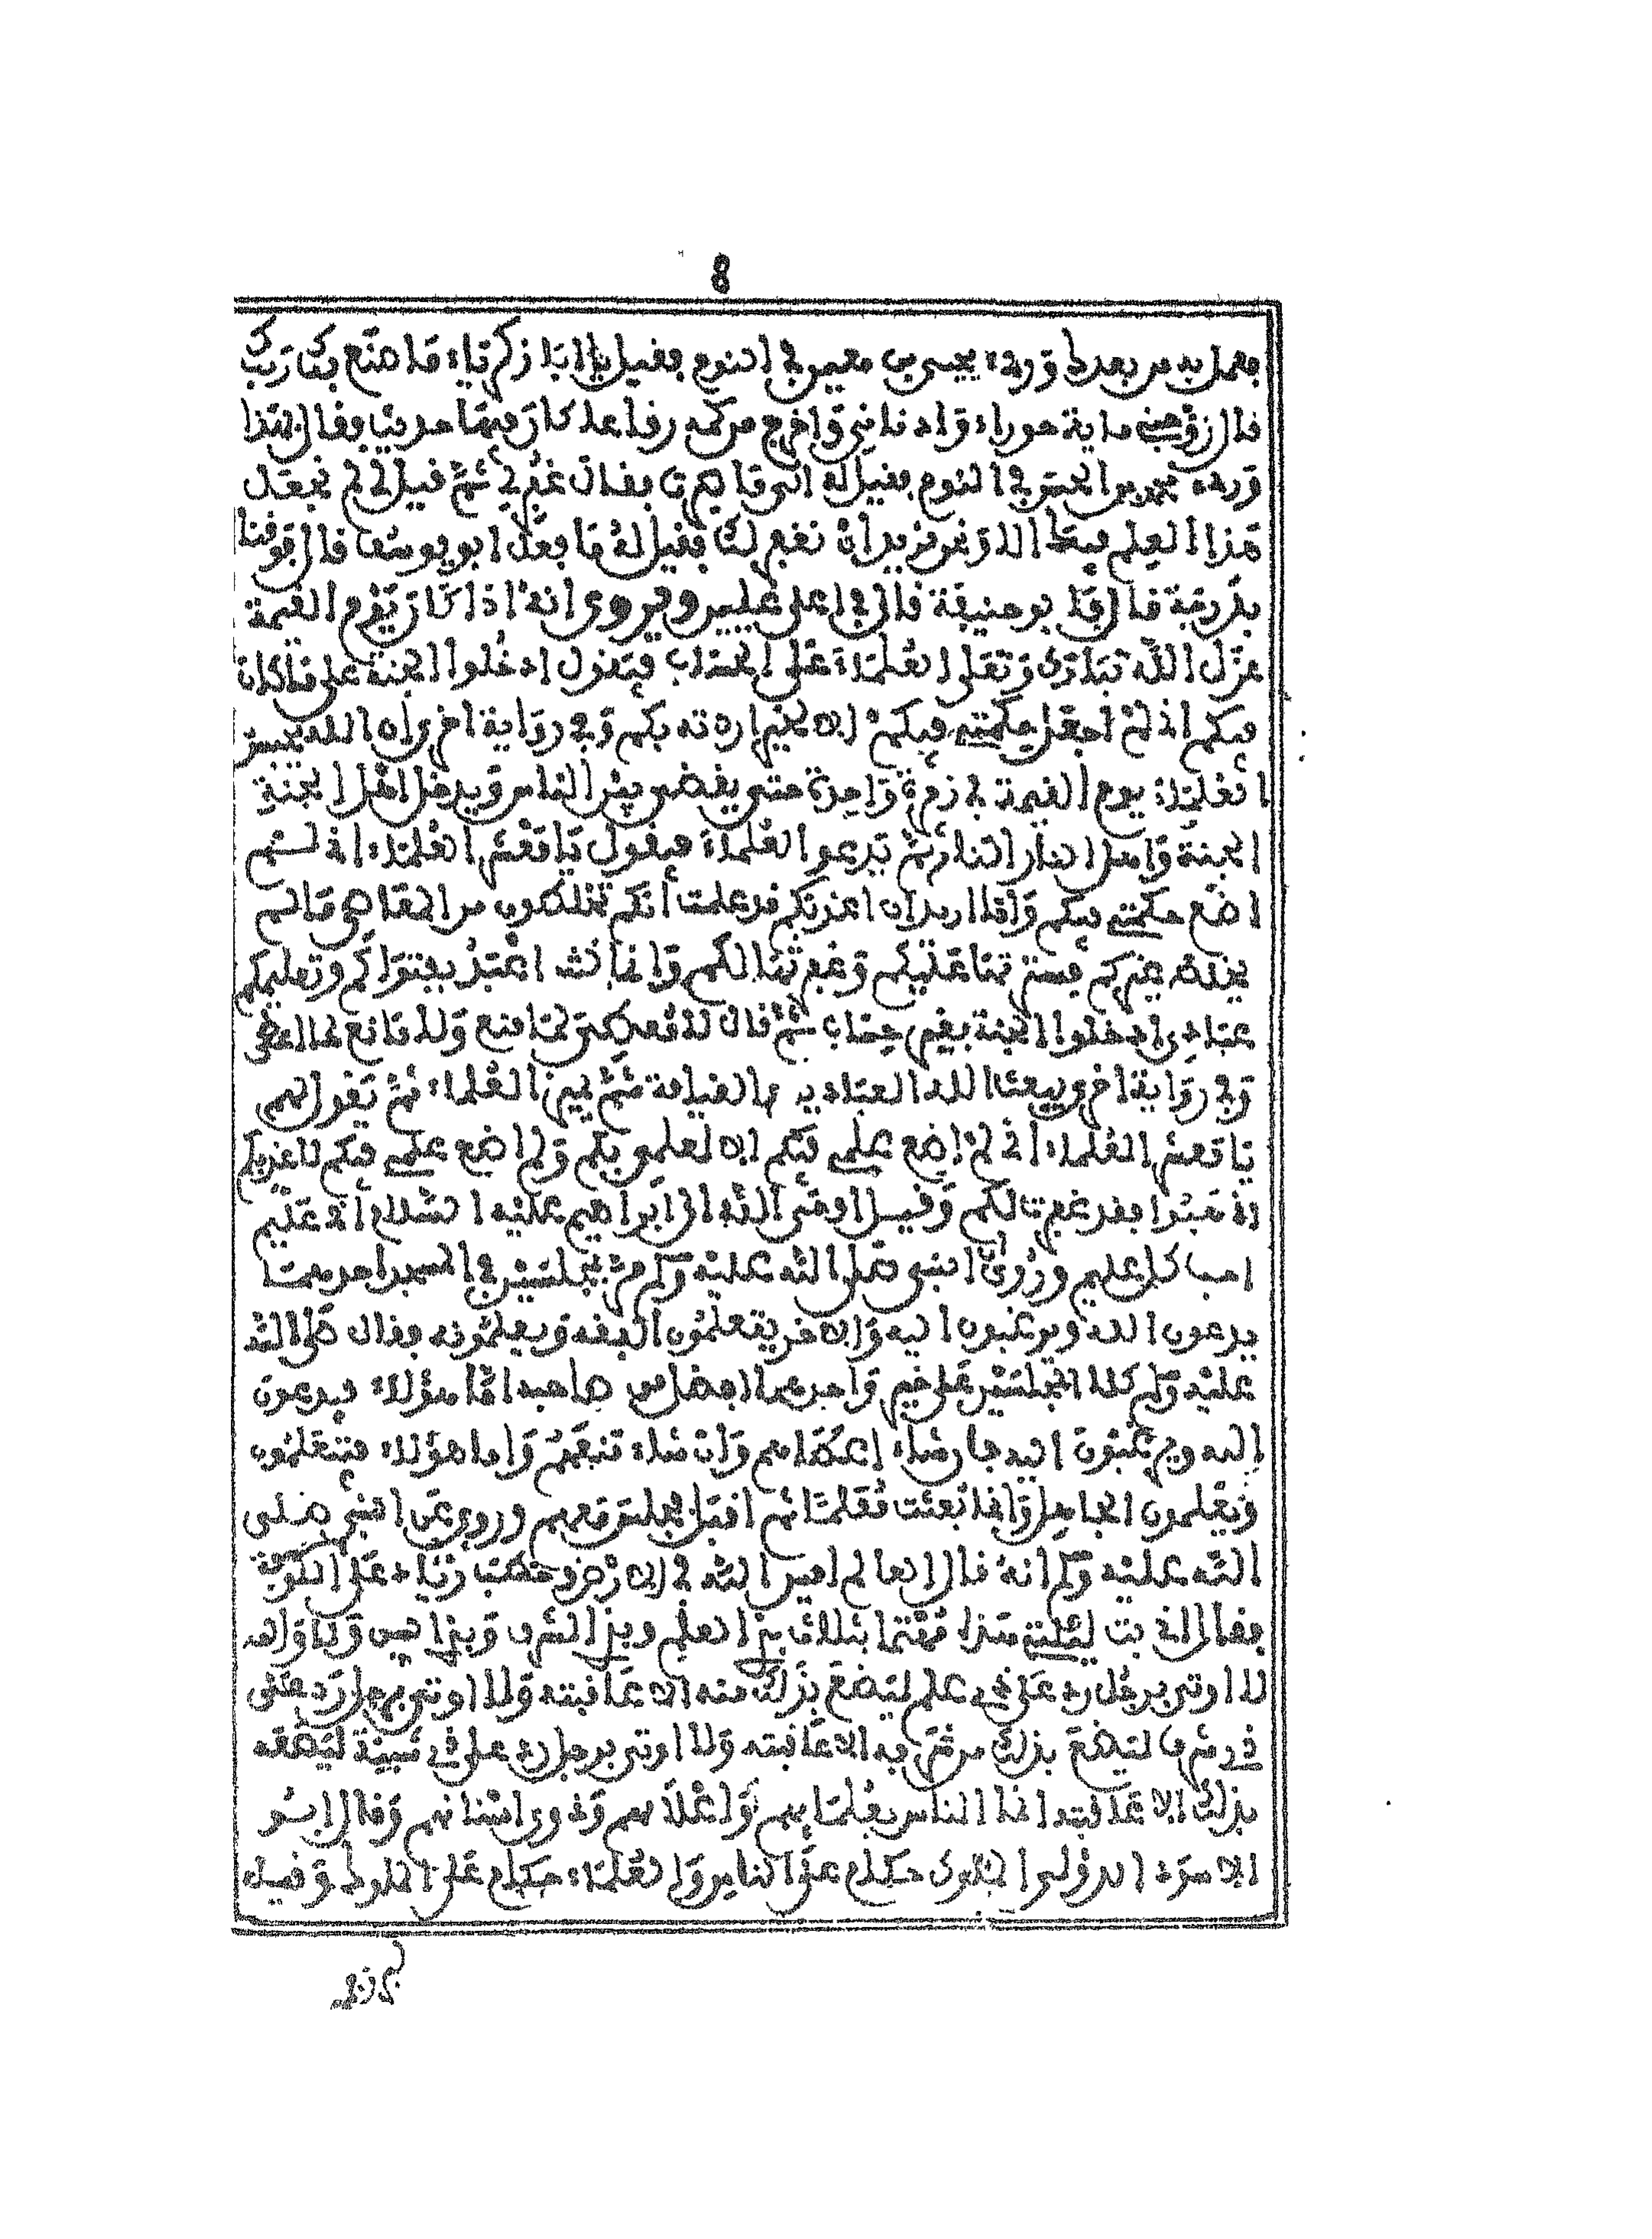 8
فعمل به من بعدك ورءى يحيى بن معين في النوم فقيل يا ابا زكرياء ما صنع بك ربك
قال زوجني ماية حوراء وادناني واخرج من كمه رقاعا كان فيها حديث فقال بهذا
ورءى محمد بن الحسن في النوم فقيل له الى ما صرت فقال غفر لي ثم قيل لي لم نجعل
هذا العلم فيك الا ونحن نريد ان نغفر لك فقيل له ما فعل ابو يوسف قال فوقنا
بدرجة قال فابو حنيفة قال في اعلى عليين ويروى انه اذا كان يوم القيمة
عزل الله تبارك وتعلى العلماء على الحساب فيقول ادخلوا الجنة على ما كان
فيكم اني لم اجعل حكمتي فيكم الا لخير اردته بكم وفي رواية اخرى ان الله يحبس
العلماء يوم القيمة في زمرة واحدة حتى يقضى بين الناس ويدخل اهل الجنة
الجنة واهل النار النار ثم يدعو العلماء فيقول يا معشر العلماء اني لم
اضع حكمتي فيكم وانا اريد ان اعذبكم قد علمت انكم تخلطون من المعاصي ما لم
يخلطه غيركم فسترتها عليكم وغفرتها لكم وانما كنت اعبد بفتواكم وتعليمكم
عبادي ادخلوا الجنة بغير حساب ثم قال لا معطي لما منع ولا مانع لما اعطى
وفي رواية اخرى يبعث الله العباد يوم القيامة ثم يميز العلماء ثم يقول لهم
يا معشر العلماء اني لم اضع علمي فيكم الا لعلمي بكم ولم اضع علمي فيكم لاعذبكم
اذهبوا فقد غفرت لكم وقيل اوحى الله الى ابراهيم عليه السلام اني عليم
احب كل عليم وروي ان النبي صلى الله عليه وسلم مر بمجلسين في المسجد احدهما
يدعون الله ويرغبون اليه والاخر يتعلمون الفقه ويعلمونه فقال صلى الله
عليه وسلم كلا المجلسين على خير واحدهما افضل من صاحبه اما هؤلاء فيدعون
الله ويرغبون اليه فان شاء اعطاهم وان شاء منعهم واما هؤلاء فيتعلمون
ويعلمون الجاهل وانما بعثت معلما ثم اقبل فجلس معهم وروي عن النبي صلى
الله عليه وسلم انه قال العالم امين الله في الارض وخطب زياد على الكوفة
فقال اني بت ليلتي هذه مهتما بثلاث بذي العلم وبذي الشرف وبذي السن ولا والله
لا اوتى برجل رد على ذي علم ليضع بذلك منه الا عاقبته ولا اوتى برجل رد على
ذي شرف ليضع بذلك من شرفه الا عاقبته ولا اوتى برجل رد على ذي شيبة ليضعه
بذلك الا عاقبته انما الناس بعلمايهم واعلامهم وذوي اسنانهم وقال ابو
الاسود الدولي الملوك حكام على الناس والعلماء حكام على الملوك وقيل